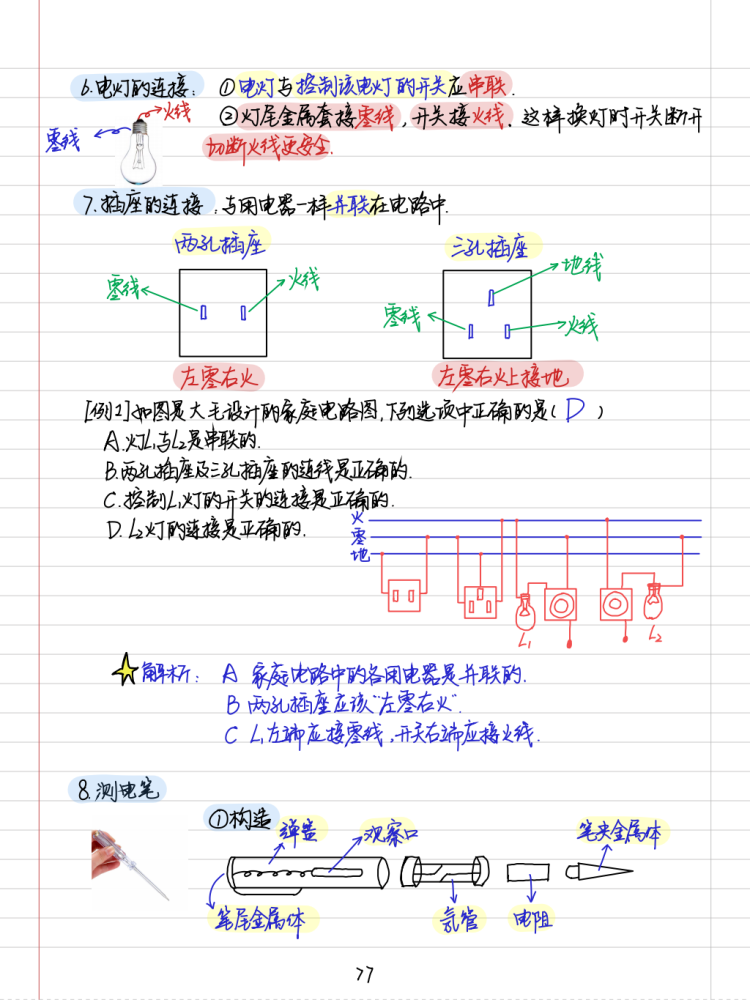 6.电灯的连接: ①电灯与控制该电灯的开关应串联.
②灯尾金属套接零线,开关接火线.这样换灯时开关断开
切断火线更安全.
火线
零线
7.插座的连接:与用电器一样并联在电路中.
两孔插座 三孔插座
零线 火线 地线
零线 火线
左零右火 左零右火上接地
[例1]如图是大毛设计的家庭电路图,下列选项中正确的是( D )
A.灯L₁与L₂是串联的.
B.两孔插座及三孔插座的连线是正确的.
C.控制L₁灯的开关的连接是正确的.
D.L₂灯的连接是正确的.
火
零
地
L₁ L₂
解析: A 家庭电路中的各用电器是并联的.
B 两孔插座应该“左零右火”.
C L₁左端应接零线,开关右端应接火线.
8.测电笔
①构造
弹簧 观察口 笔尖金属体
笔尾金属体 氖管 电阻
77